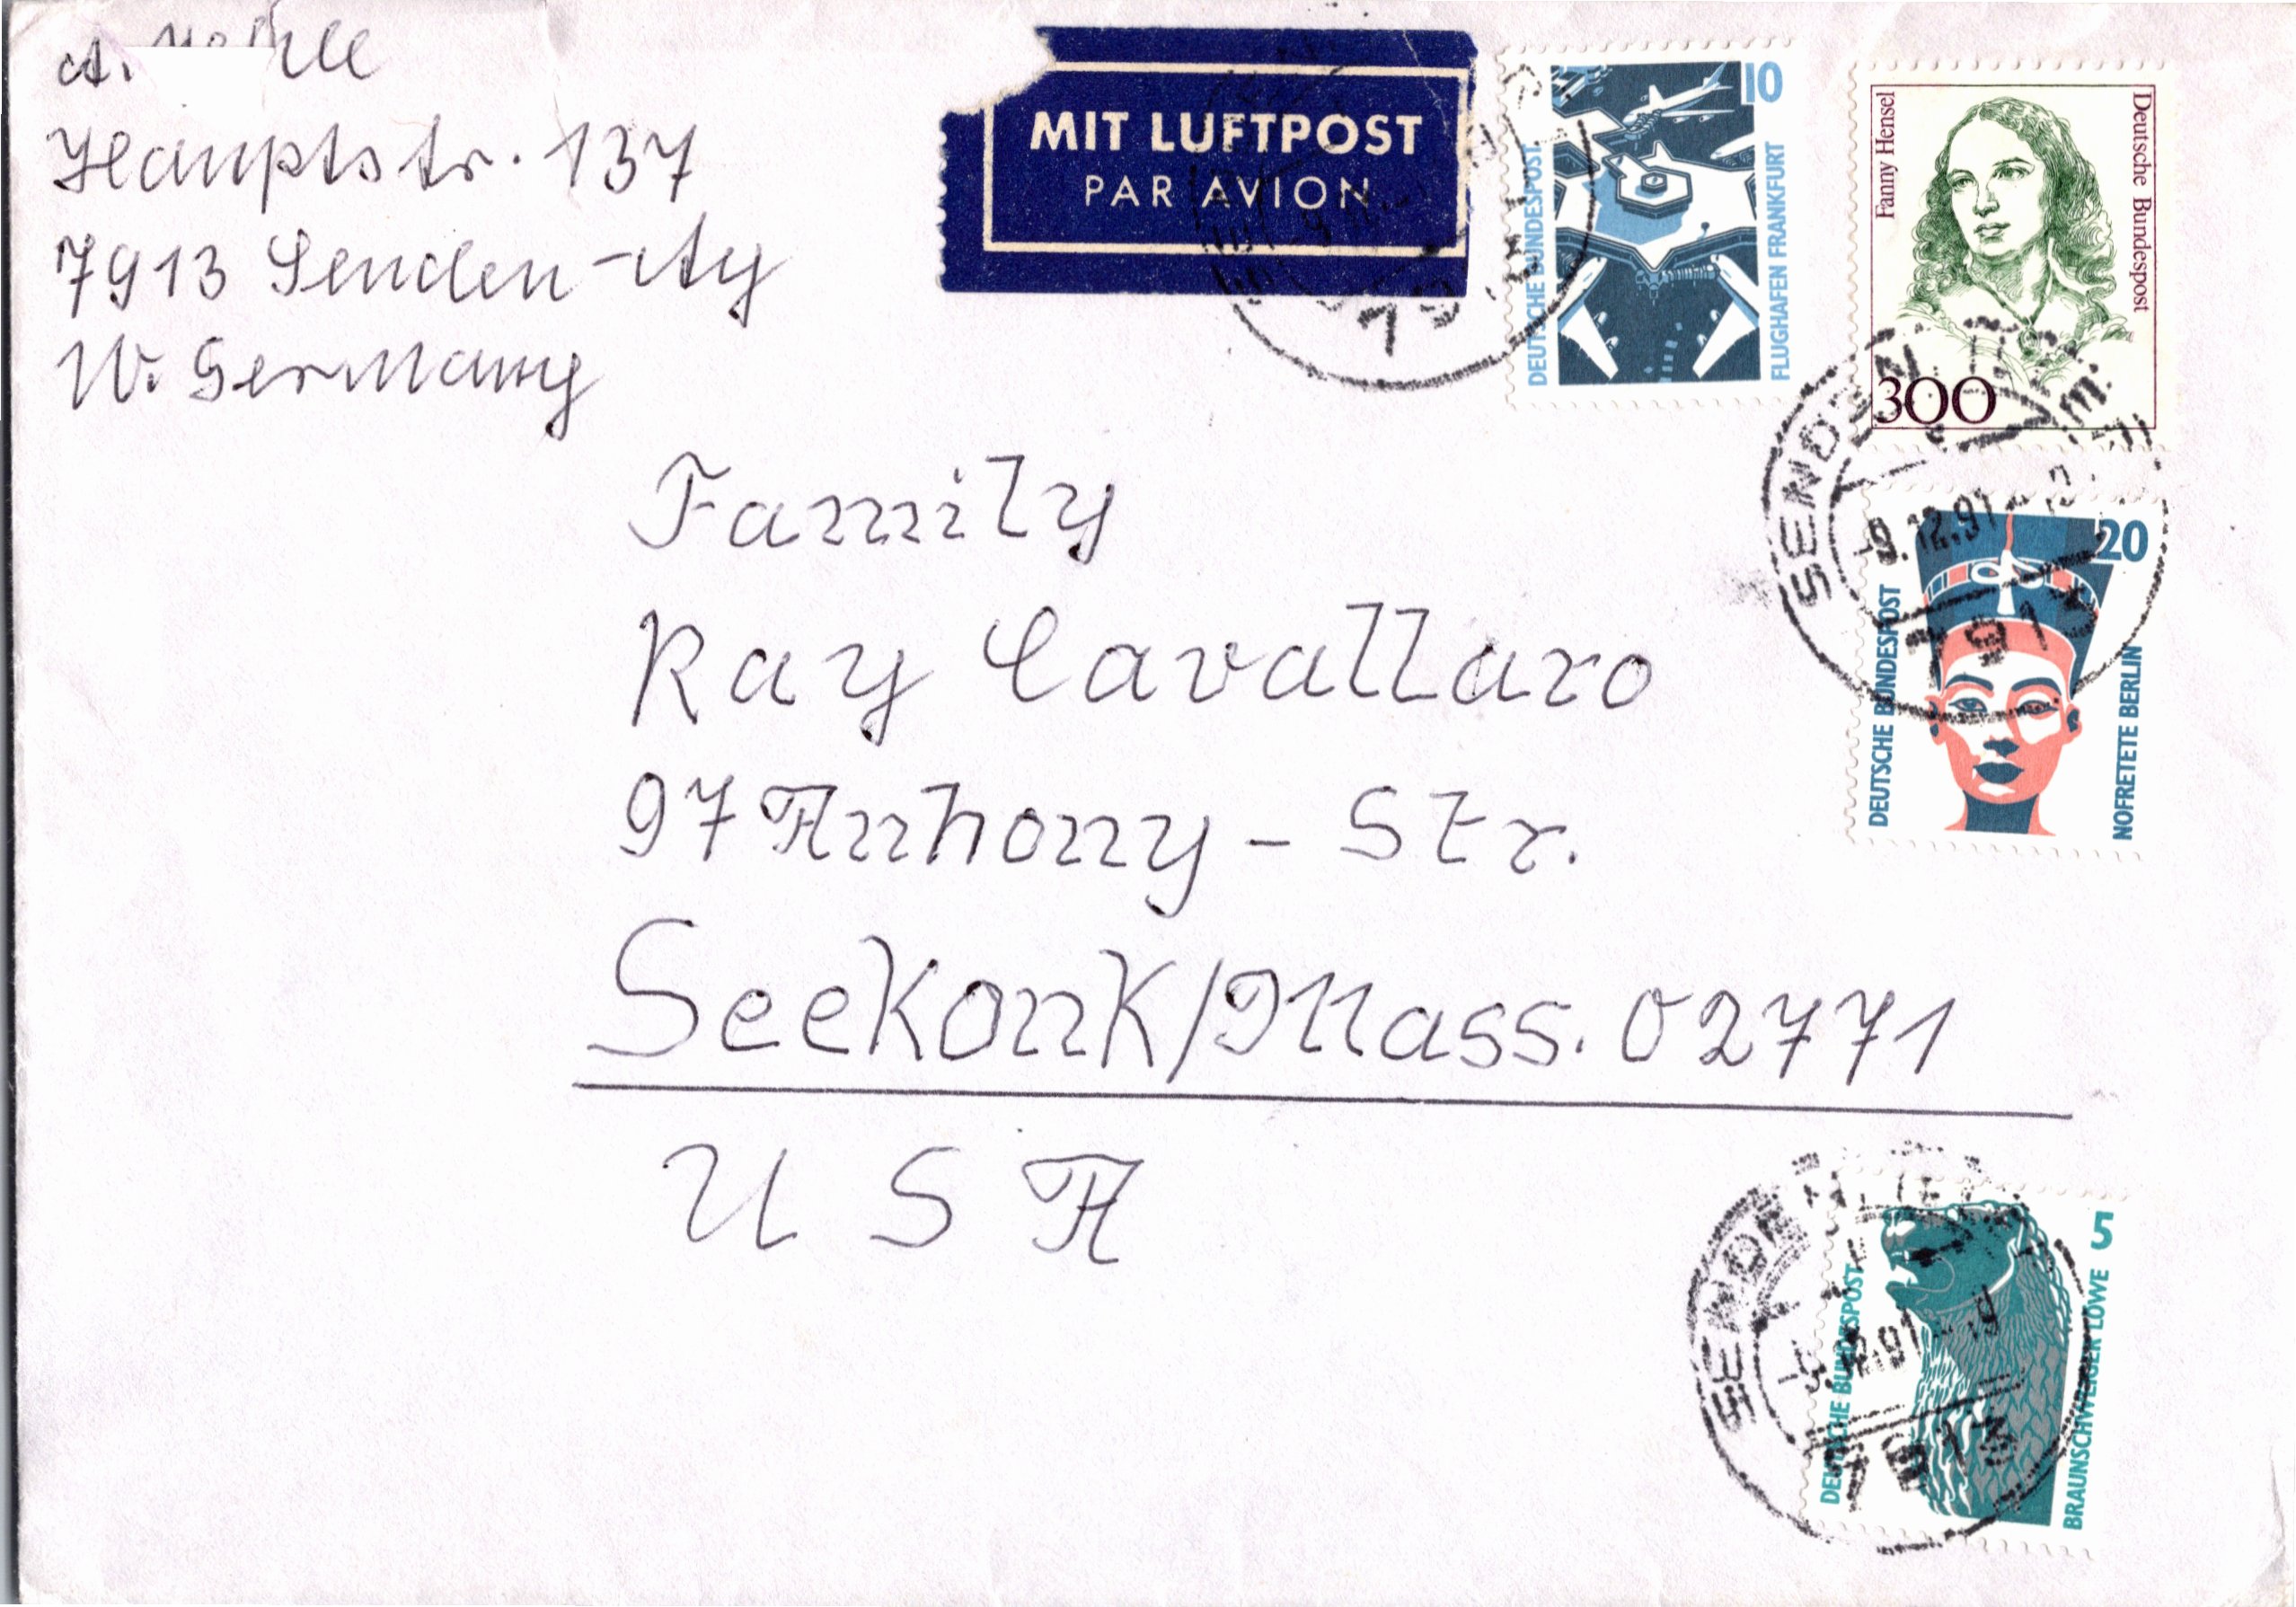 A.
Hauptstr. 137
7913 Senden-Ay
W. Germany
MIT LUFTPOST
PAR AVION
10
DEUTSCHE BUNDESPOST
FLUGHAFEN FRANKFURT
Fanny Hensel
Deutsche Bundespost
300
SENDEN
-9.12.91
7913
20
DEUTSCHE BUNDESPOST
NOFRETETE BERLIN
Family
Ray Cavallaro
97 Anhony - Str.
Seekonk/Mass. 02771
USA
SENDEN
7913
5
DEUTSCHE BUNDESPOST
BRAUNSCHWEIGER LÖWE